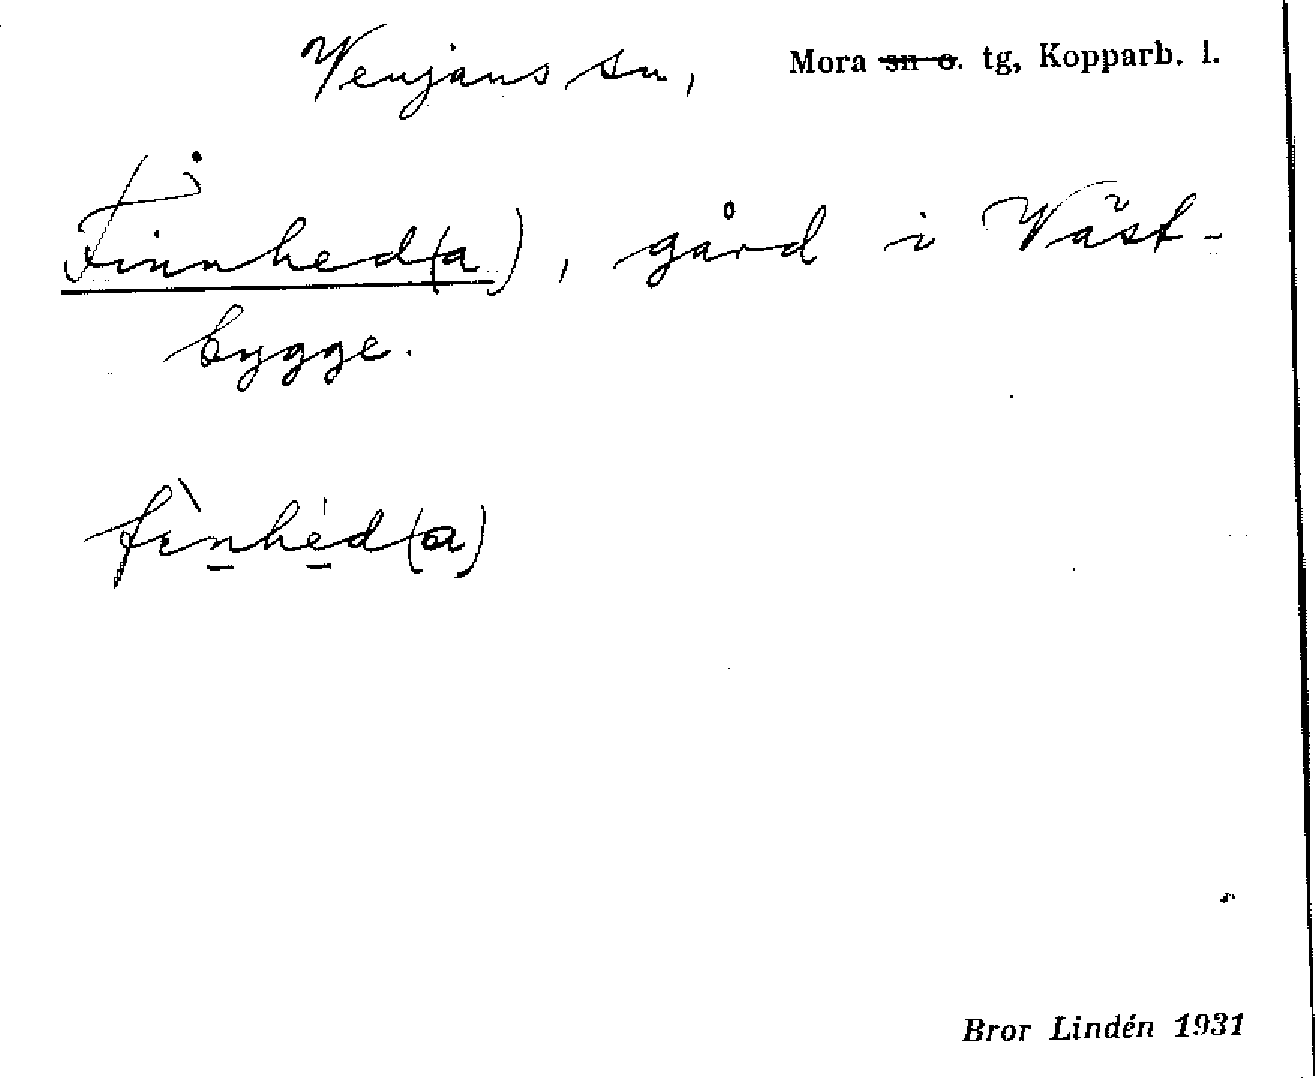 Venjans sn, Mora sn o. tg, Kopparb. l.
Finnhed(a), gård i Väst-
bygge.
fìnhéd(a)
Bror Lindén 1931